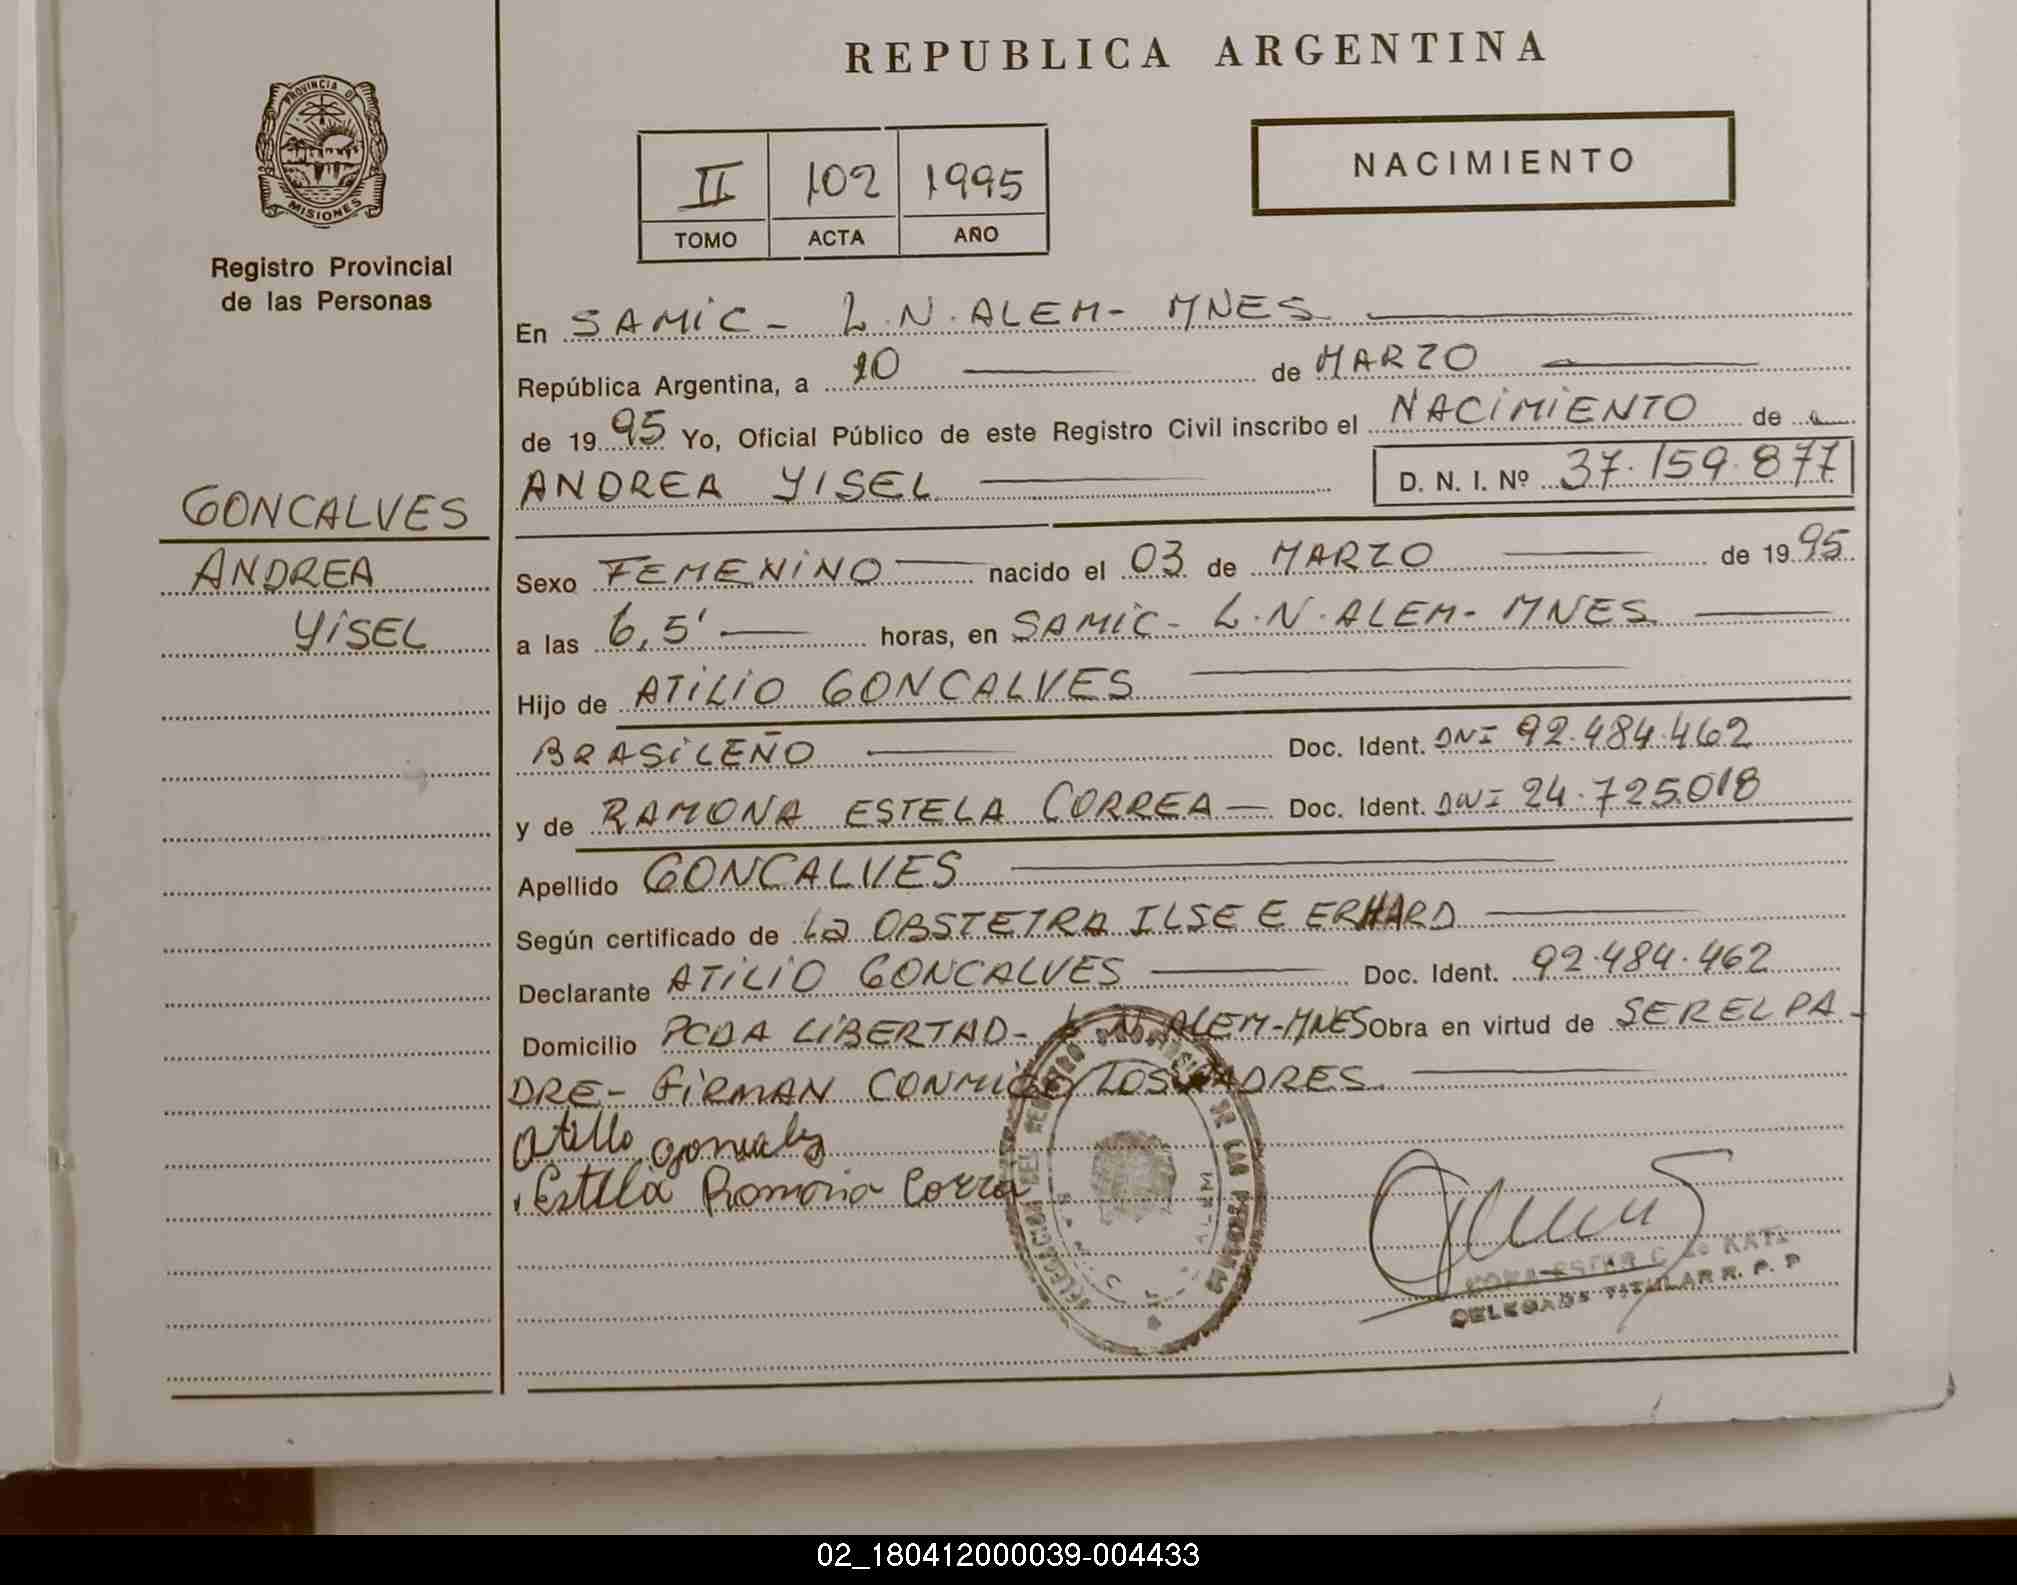 REPUBLICA ARGENTINA
PROVINCIA DE
MISIONES
Registro Provincial
de las Personas
II 102 1995
TOMO ACTA AÑO
NACIMIENTO
GONCALVES
ANDREA
YISEL
En SAMIC - L.N. ALEM - MNES
República Argentina, a 10 de MARZO
de 1995 Yo, Oficial Público de este Registro Civil inscribo el NACIMIENTO de
ANDREA YISEL D. N. I. Nº 37.159.877
Sexo FEMENINO nacido el 03 de MARZO de 1995
a las 6,5' horas, en SAMIC - L.N. ALEM - MNES
Hijo de ATILIO GONCALVES
BRASILEÑO Doc. Ident. DNI 92.484.462
y de RAMONA ESTELA CORREA Doc. Ident. DNI 24.725.018
Apellido GONCALVES
Según certificado de La OBSTETRA ILSE E ERHARD
Declarante ATILIO GONCALVES Doc. Ident. 92.484.462
Domicilio PCDA LIBERTAD - L N ALEM - MNES Obra en virtud de SER EL PA-
DRE - FIRMAN CONMIGO LOS PADRES
Atilio
Estela Ramona Correa
DELEGACION DEL REGISTRO PROVINCIAL DE LAS PERSONAS
DELEGADA TITULAR R. P. P
02_180412000039-004433